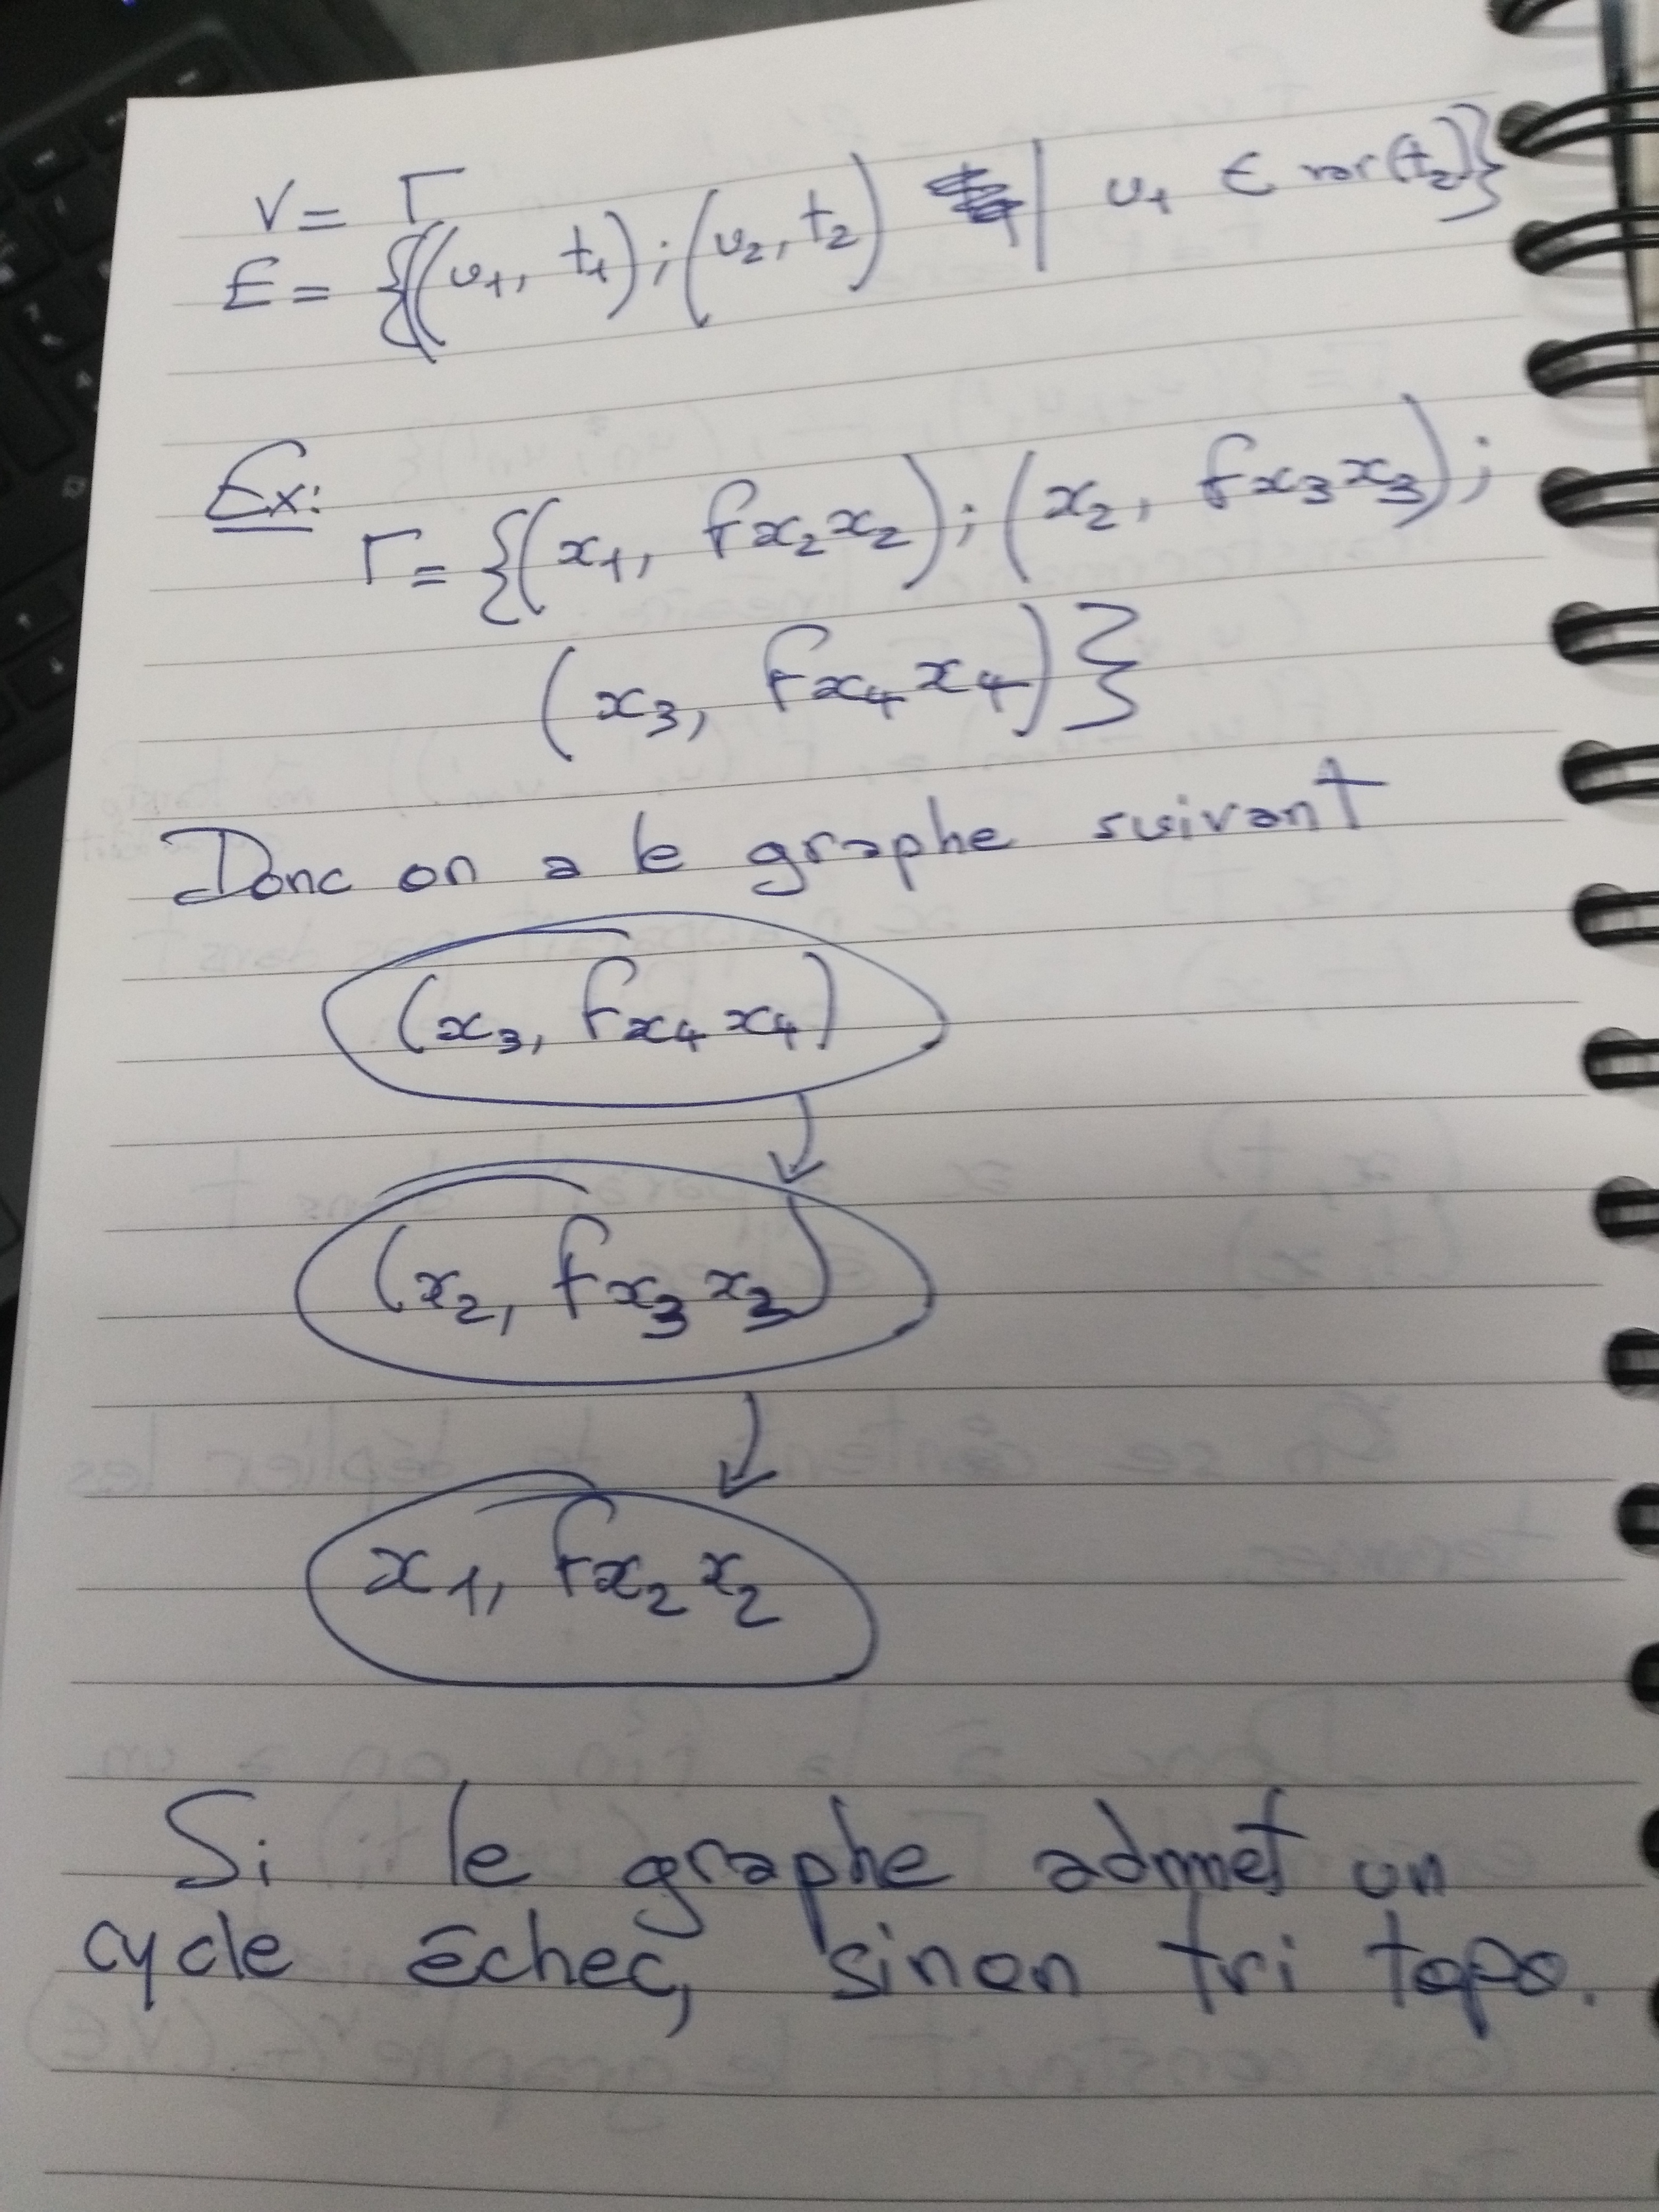 V = Γ
E = {((v₁, t₁) ; (v₂, t₂) | v₁ ∈ var(t₂)}
Ex:
Γ = {(x₁, fx₂x₂) ; (x₂, fx₃x₃) ;
(x₃, fx₄x₄)}
Donc on a le graphe suivant
(x₃, fx₄x₄)
(x₂, fx₃x₃)
x₁, fx₂x₂
Si le graphe admet un
cycle échec, sinon tri topo.